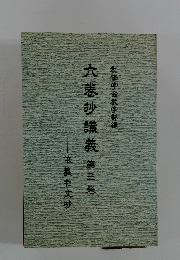 創価学会教学部編
六巻抄講義 第三巻
――依義判文抄